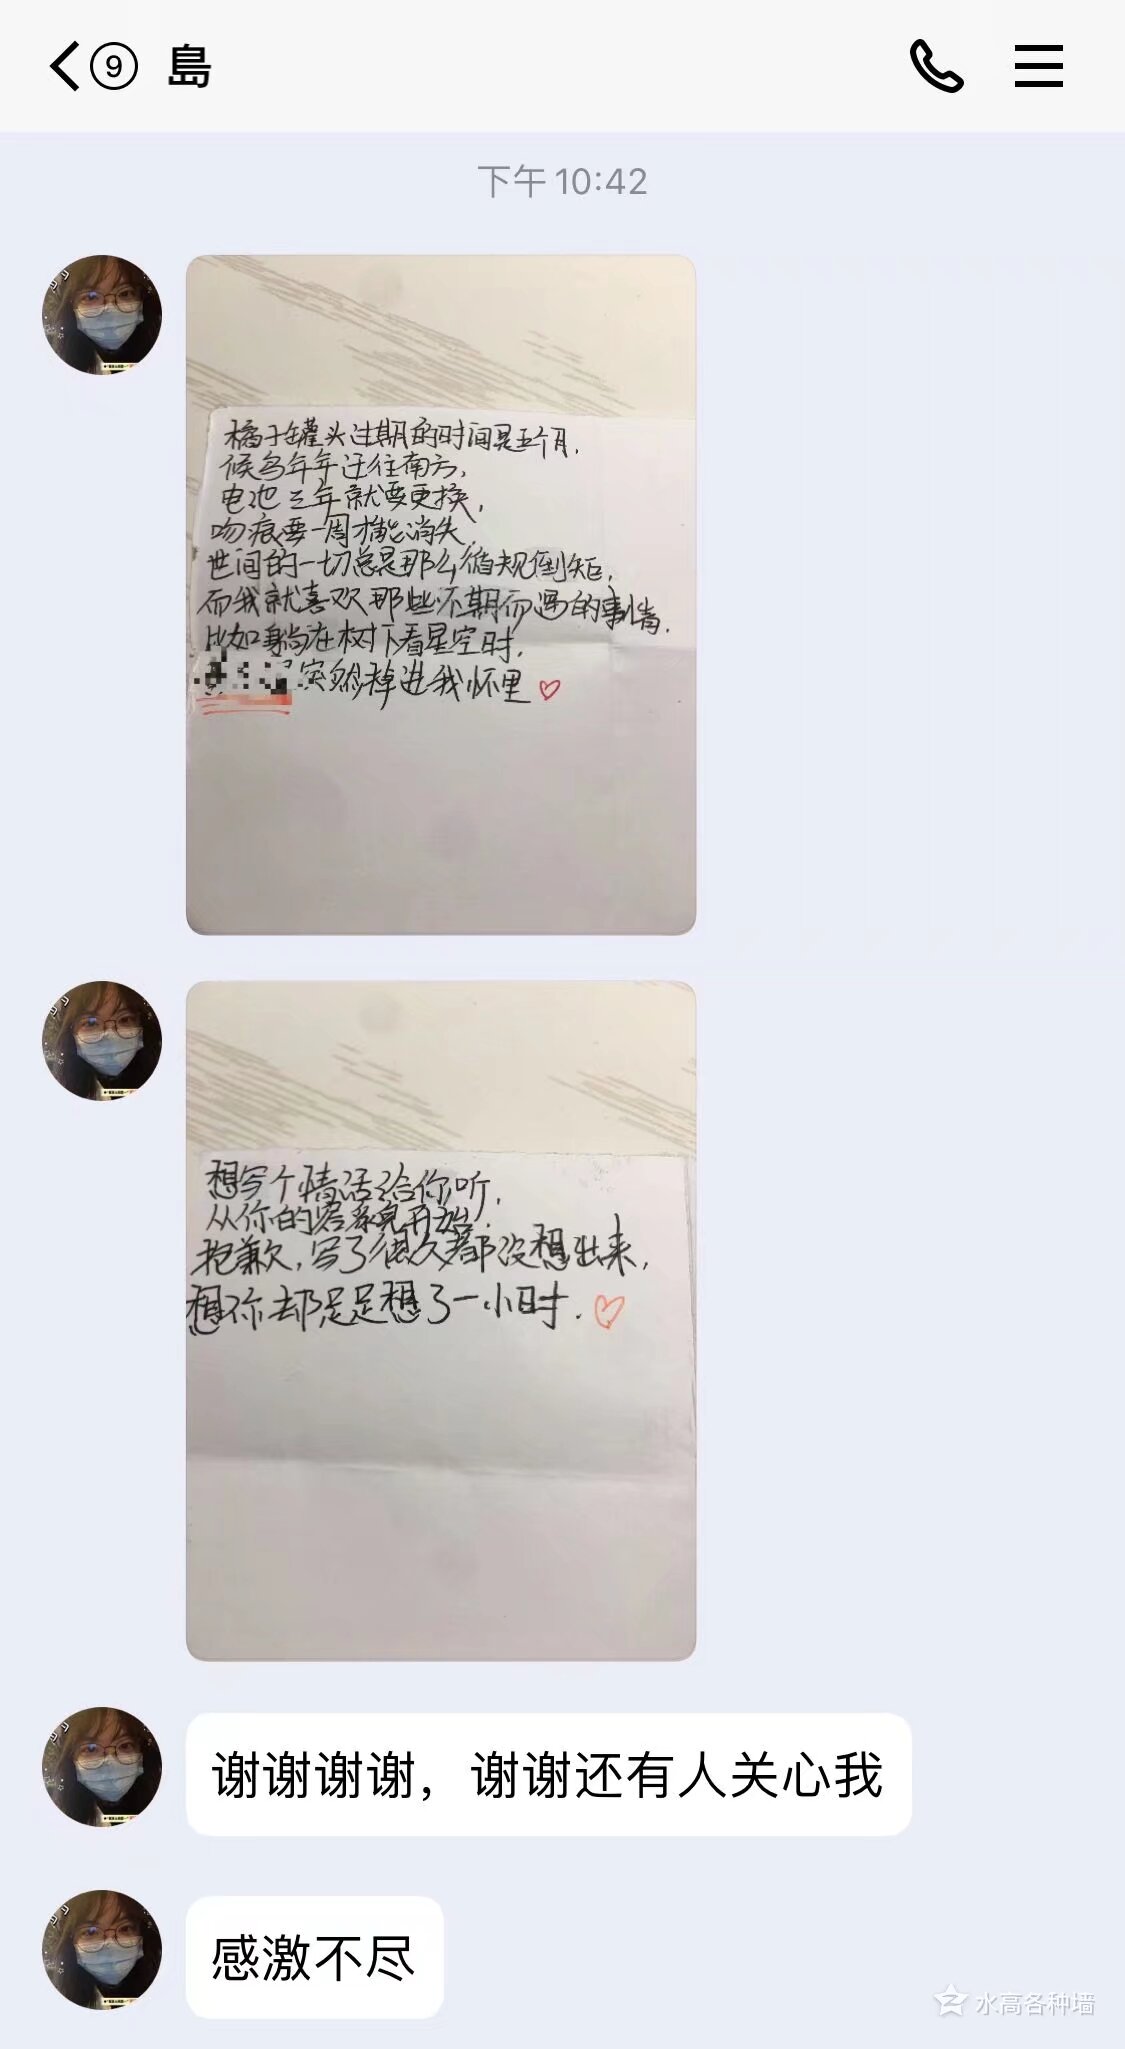 9 島
下午 10:42
橘子罐头过期的时间是五个月.
候鸟年年迁往南方,
电池三年就要更换,
吻痕要一周才能消失,
世间的一切总是那么循规倒矩,
而我就喜欢那些不期而遇的事情.
比如躺在树下看星空时,
突然掉进我怀里
想写个情话给你听,
从你的客系统开始.
抱歉,写了很久都没想出来,
想你却足足想了一小时.
谢谢谢谢，谢谢还有人关心我
感激不尽
水高各种墙